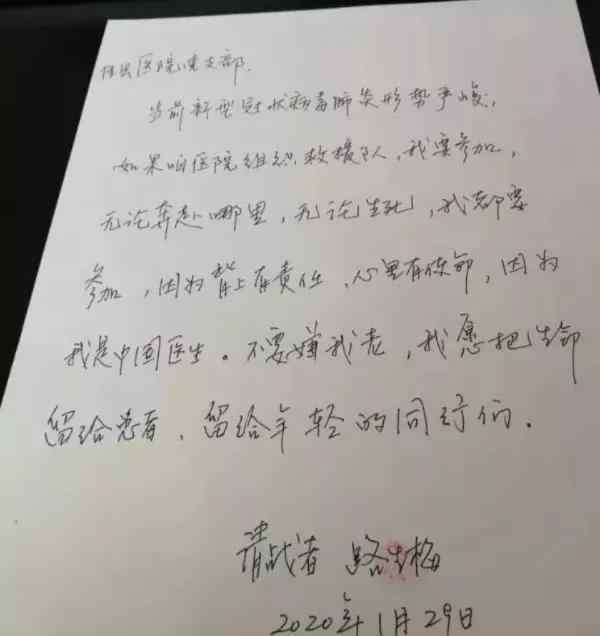 佳县医院党支部.
当前新型冠状病毒肺炎形势严峻，
如果咱医院组织救援队，我要参加，
无论奔赴哪里，无论生死，我都要
参加，因为背上有责任，心里有使命，因为
我是中国医生。不要嫌我老，我愿把生命
留给患者，留给年轻的同行们。
请战者 路生梅
2020年1月29日